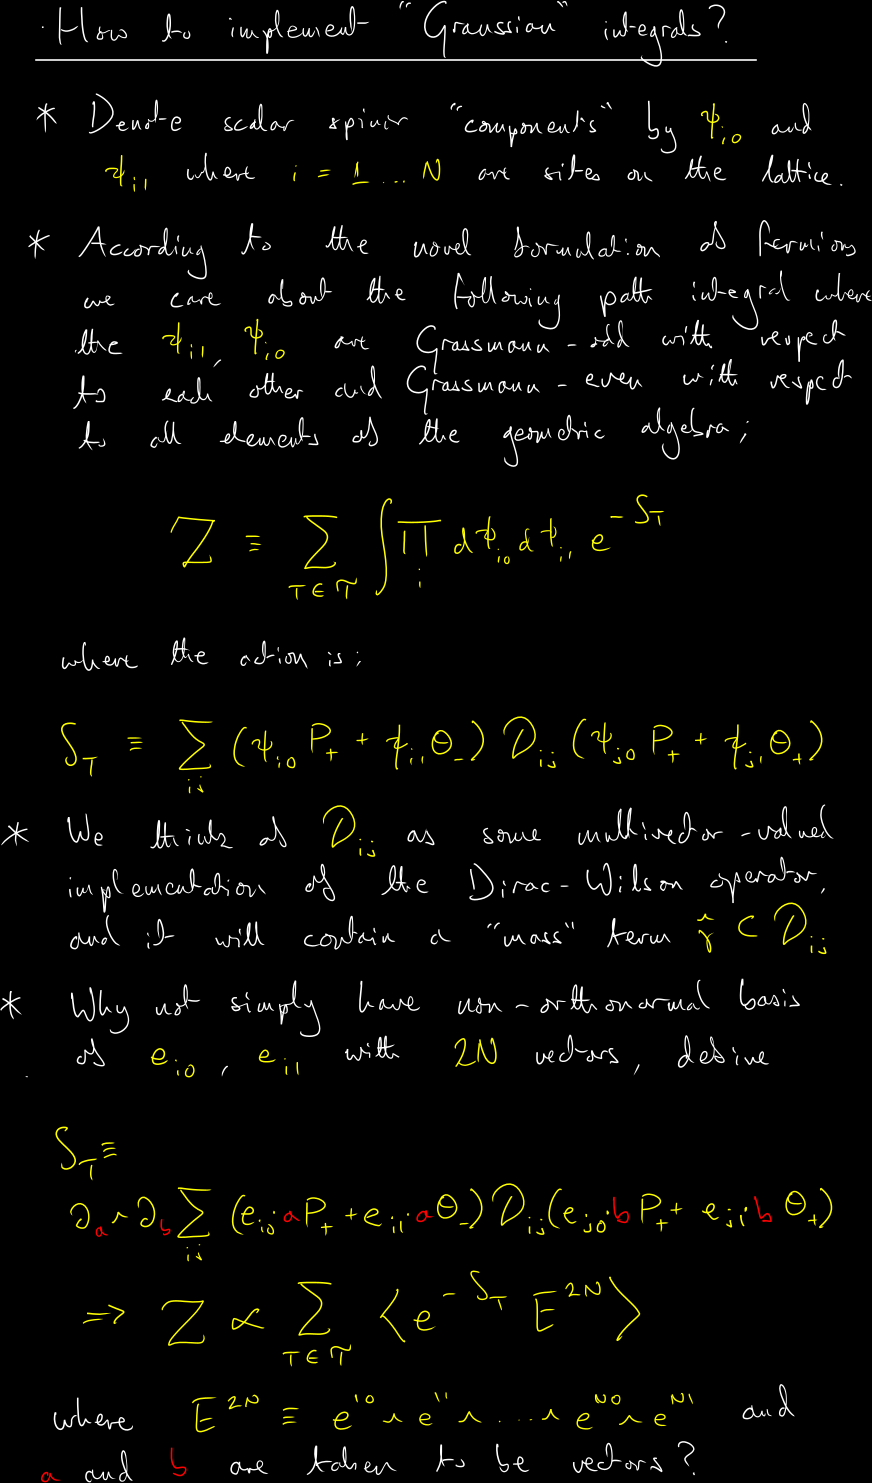 How to implement "Graussian" integrals?
* Denote scalar spinor "components" by ψ_{i0} and
ψ_{i1} where i = 1...N are sites on the lattice.
* According to the novel formulation of fermions
we care about the following path integral where
the ψ_{i1}, ψ_{i0} are Grassmann-odd with respect
to each other and Grassmann-even with respect
to all elements of the geometric algebra;
Z ≡ ∑_{T∈𝒯} ∫ ∏_i dψ_{i0} dψ_{i1} e^{-S_T}
where the action is;
S_T ≡ ∑_{ij} (ψ_{i0} P_+ + ψ_{i1} Θ_-) 𝒟_{ij} (ψ_{j0} P_+ + ψ_{j1} Θ_+)
* We think of 𝒟_{ij} as some multivector-valued
implementation of the Dirac-Wilson operator,
and it will contain a "mass" term γ̂ ⊂ 𝒟_{ij}
* Why not simply have non-orthonormal basis
of e_{i0}, e_{i1} with 2N vectors, define
S_T ≡
∂_a ∧ ∂_b ∑_{ij} (e_{i0}·a P_+ + e_{i1}·a Θ_-) 𝒟_{ij} (e_{j0}·b P_+ + e_{j1}·b Θ_+)
⇒ Z ∝ ∑_{T∈𝒯} ⟨e^{-S_T} E^{2N}⟩
where E^{2N} ≡ e^{10} ∧ e^{11} ∧ ... ∧ e^{N0} ∧ e^{N1} and
a and b are taken to be vectors?